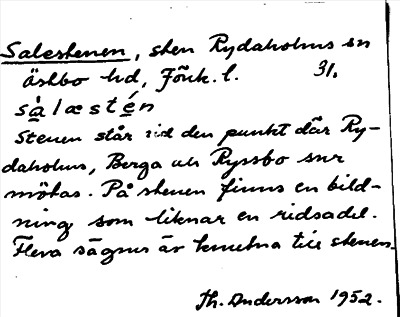 Salestenen, sten Rydaholms sn
Östbo hd, Jönk. l. 31.
sàlæstén
Stenen står vid den punkt där Ry-
daholms, Berga och Ryssbo snr
mötas. På stenen finns en bild-
ning som liknar en ridsadel.
Flera sägner är knutna till stenen.
Th. Andersson 1952.